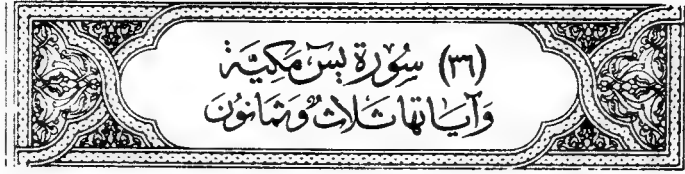 (٣٦) سُورَة يسٓ مَكِيَّة
وَآيَاتهَا ثَلَاثٌ وَثَمَانُونَ